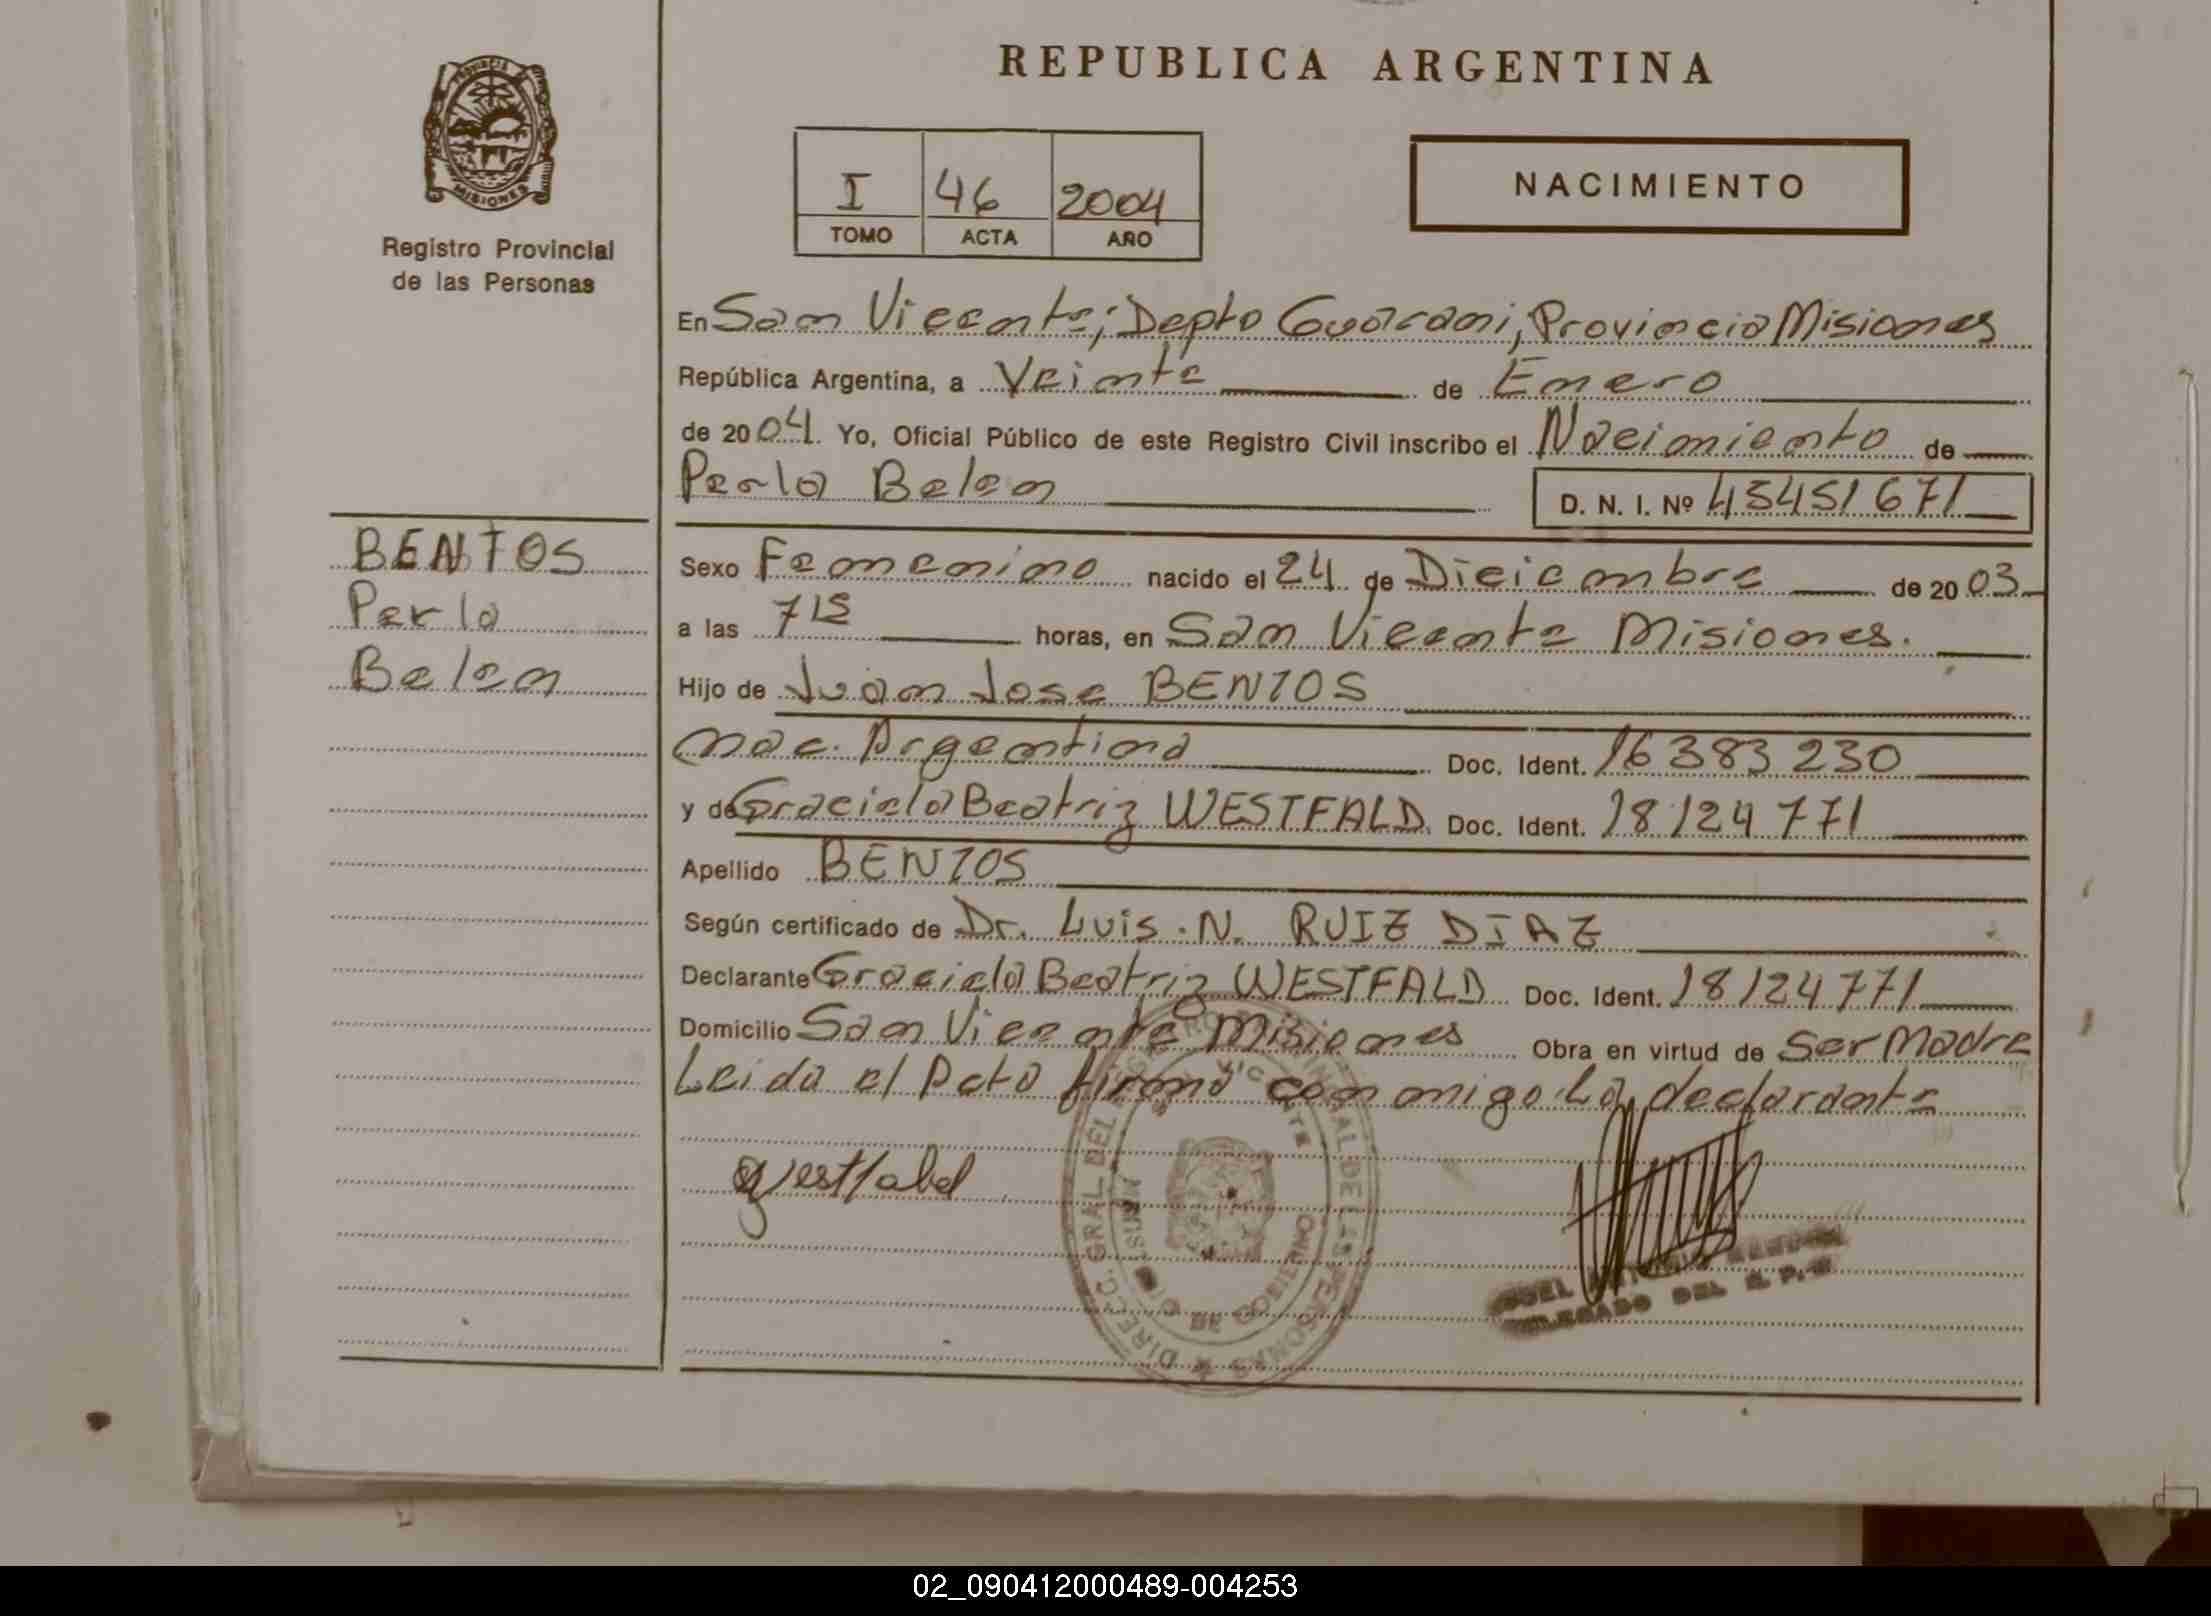 REPUBLICA ARGENTINA
PROVINCIA DE MISIONES
Registro Provincial
de las Personas
I 46 2004
TOMO ACTA AÑO
NACIMIENTO
En San Vicente, Depto Guarani, Provincia Misiones
República Argentina, a Veinte de Enero
de 2004. Yo, Oficial Público de este Registro Civil inscribo el Nacimiento de
Perla Belen
D. N. I. Nº 45451671
BENTOS
Perla
Belen
Sexo Femenino nacido el 24 de Diciembre de 2003
a las 7 15 horas, en San Vicente Misiones.
Hijo de Juan Jose BENTOS
nac. Argentina Doc. Ident. 16383230
y de Graciela Beatriz WESTFALD Doc. Ident. 18124771
Apellido BENTOS
Según certificado de Dr. Luis N. RUIZ DIAZ
Declarante Graciela Beatriz WESTFALD Doc. Ident. 18124771
Domicilio San Vicente Misiones Obra en virtud de Ser Madre
Leida el Acta firma conmigo La declarante
DIRECC. GRAL. DEL DE PERSONAS
GOBIERNO
DELEGADO DEL R. P.
02_090412000489-004253